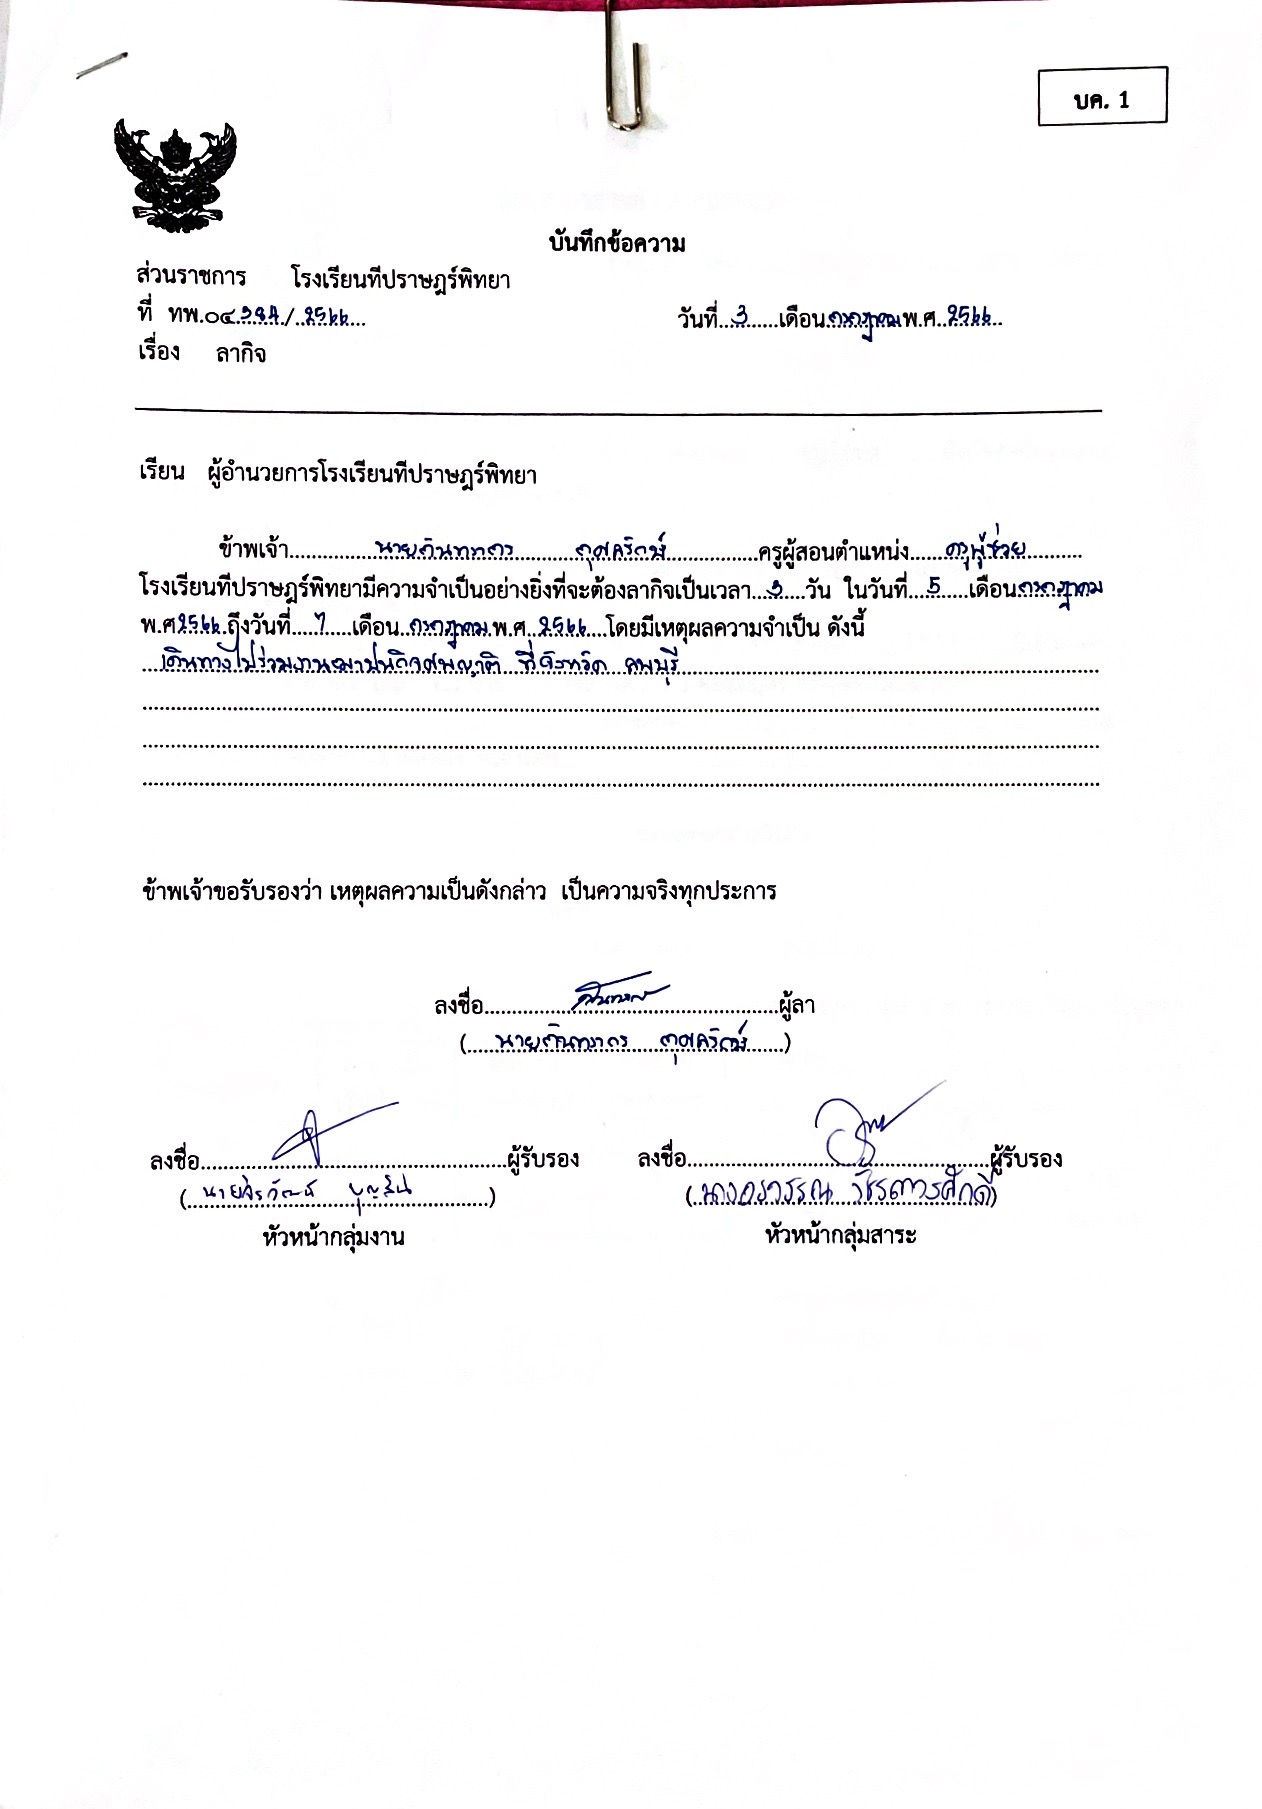 บค. 1
บันทึกข้อความ
ส่วนราชการ โรงเรียนทีปราษฎร์พิทยา
ที่ ทพ.๐๔ / 2566 วันที่ 3 เดือน กรกฎาคม พ.ศ. 2566
เรื่อง ลากิจ
เรียน ผู้อำนวยการโรงเรียนทีปราษฎร์พิทยา
ข้าพเจ้า ครูผู้สอนตำแหน่ง ครูผู้ช่วย
โรงเรียนทีปราษฎร์พิทยามีความจำเป็นอย่างยิ่งที่จะต้องลากิจเป็นเวลา 3 วัน ในวันที่ 5 เดือน กรกฎาคม
พ.ศ 2566 ถึงวันที่ 7 เดือน กรกฎาคม พ.ศ. 2566 โดยมีเหตุผลความจำเป็น ดังนี้
เดินทางไปร่วมงานฌาปนกิจศพญาติ ที่จังหวัด ลพบุรี
ข้าพเจ้าขอรับรองว่า เหตุผลความเป็นดังกล่าว เป็นความจริงทุกประการ
ลงชื่อ ผู้ลา
ลงชื่อ ผู้รับรอง ลงชื่อ ผู้รับรอง
(นายจิรวัฒน์ บุญสิน) (นางอรวรรณ วัชรถาวรศักดิ์)
หัวหน้ากลุ่มงาน หัวหน้ากลุ่มสาระ